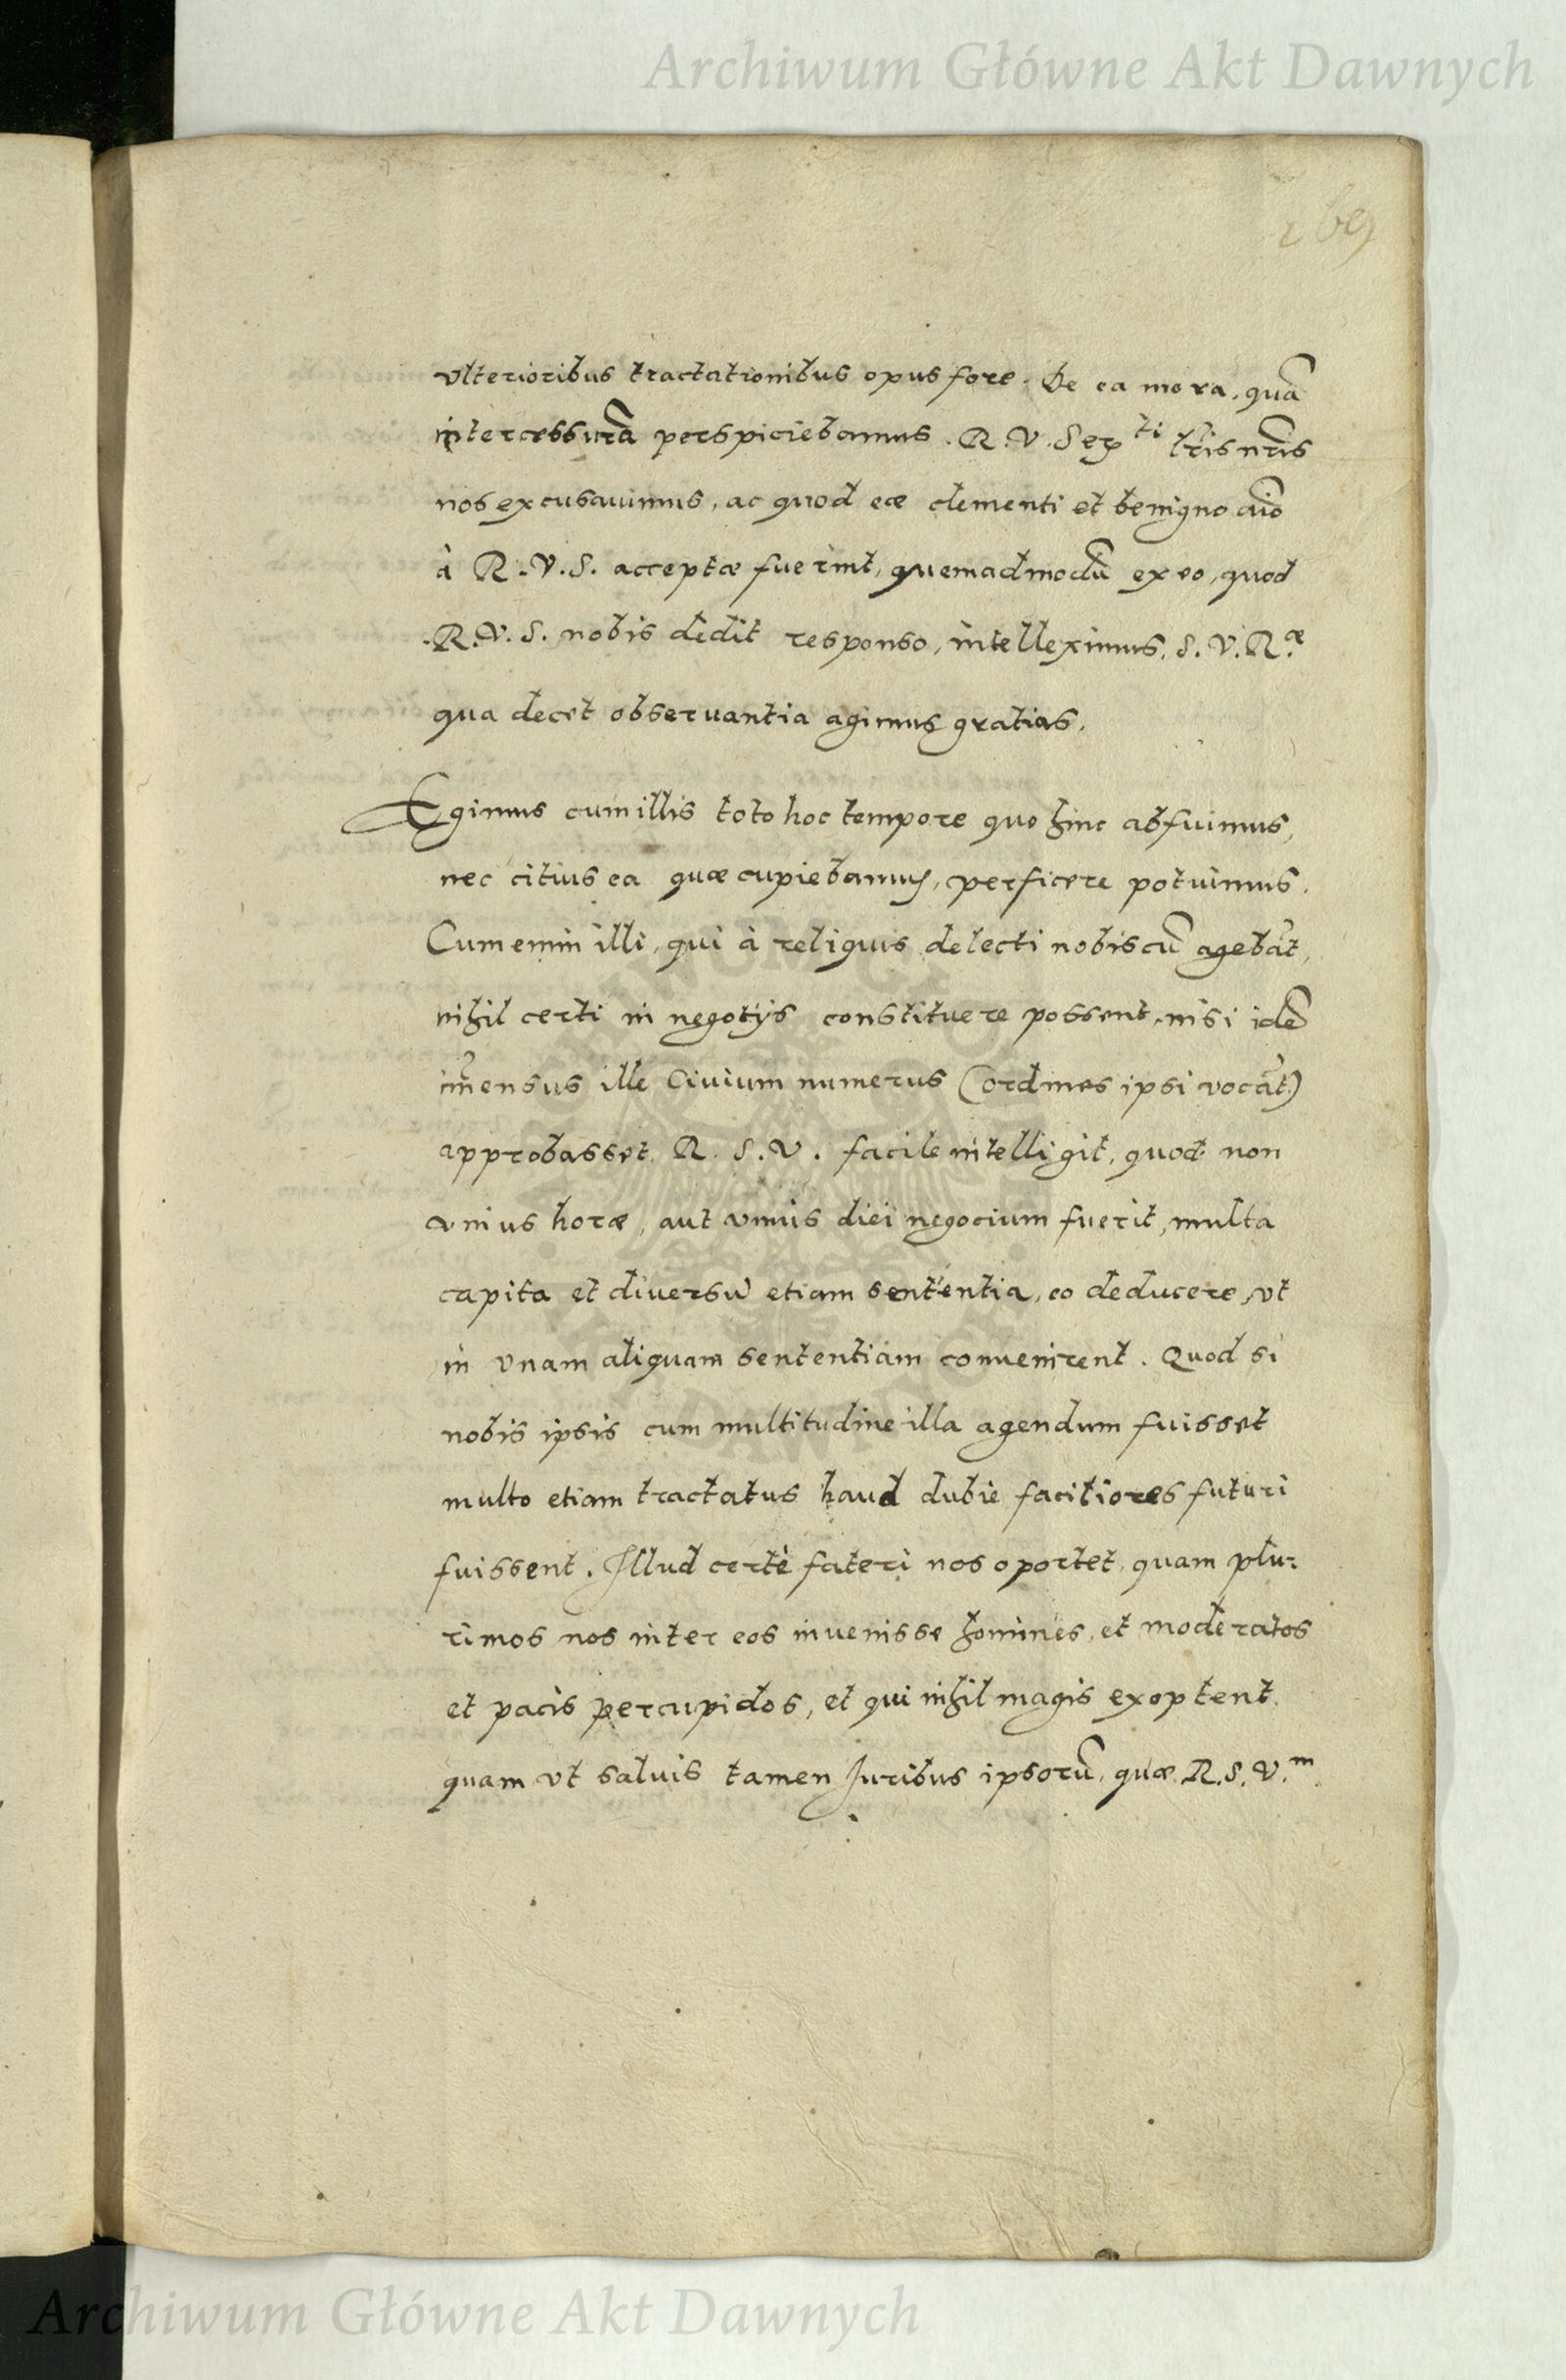 Archiwum Główne Akt Dawnych
269
vlterioribus tractationibus opus fore. De ea mora, quã
intercessurã perspiciebamus. R. V. Ser^ti l̃ris nr̃is
nos excusauimus, ac quod eæ clementi et benigno aĩo
à R. V. S. acceptæ fuerint, quemadmodũ ex eo, quod
R. V. S. nobis dedit responso, intelleximus, S. V. R.^æ
qua decet obseruantia agimus gratias.
Egimus cum illis toto hoc tempore quo hinc abfuimus,
nec citius ea quæ cupiebamus, perficere potuimus.
Cum enim illi, qui à reliquis delecti nobiscũ agebãt,
nihil certi in negotijs constituere possent, nisi idẽ
im̃ensus ille Ciuium numerus (ordines ipsi vocãt)
approbasset. R. S. V. facile intelligit, quod non
vnius horæ, aut vnius diei negocium fuerit, multa
capita et diuersũ etiam sententia, eo deducere, vt
in vnam aliquam sententiam conuenirent. Quod si
nobis ipsis cum multitudine illa agendum fuisset
multo etiam tractatus haud dubie faciliores futuri
fuissent. Illud certè fateri nos oportet, quam plu-
rimos nos inter eos inuenisse homines, et moderatos
et pacis percupidos, et qui nihil magis exoptent.
quam vt saluis tamen Juribus ipsorũ, quæ R. S. V.^m
Archiwum Główne Akt Dawnych